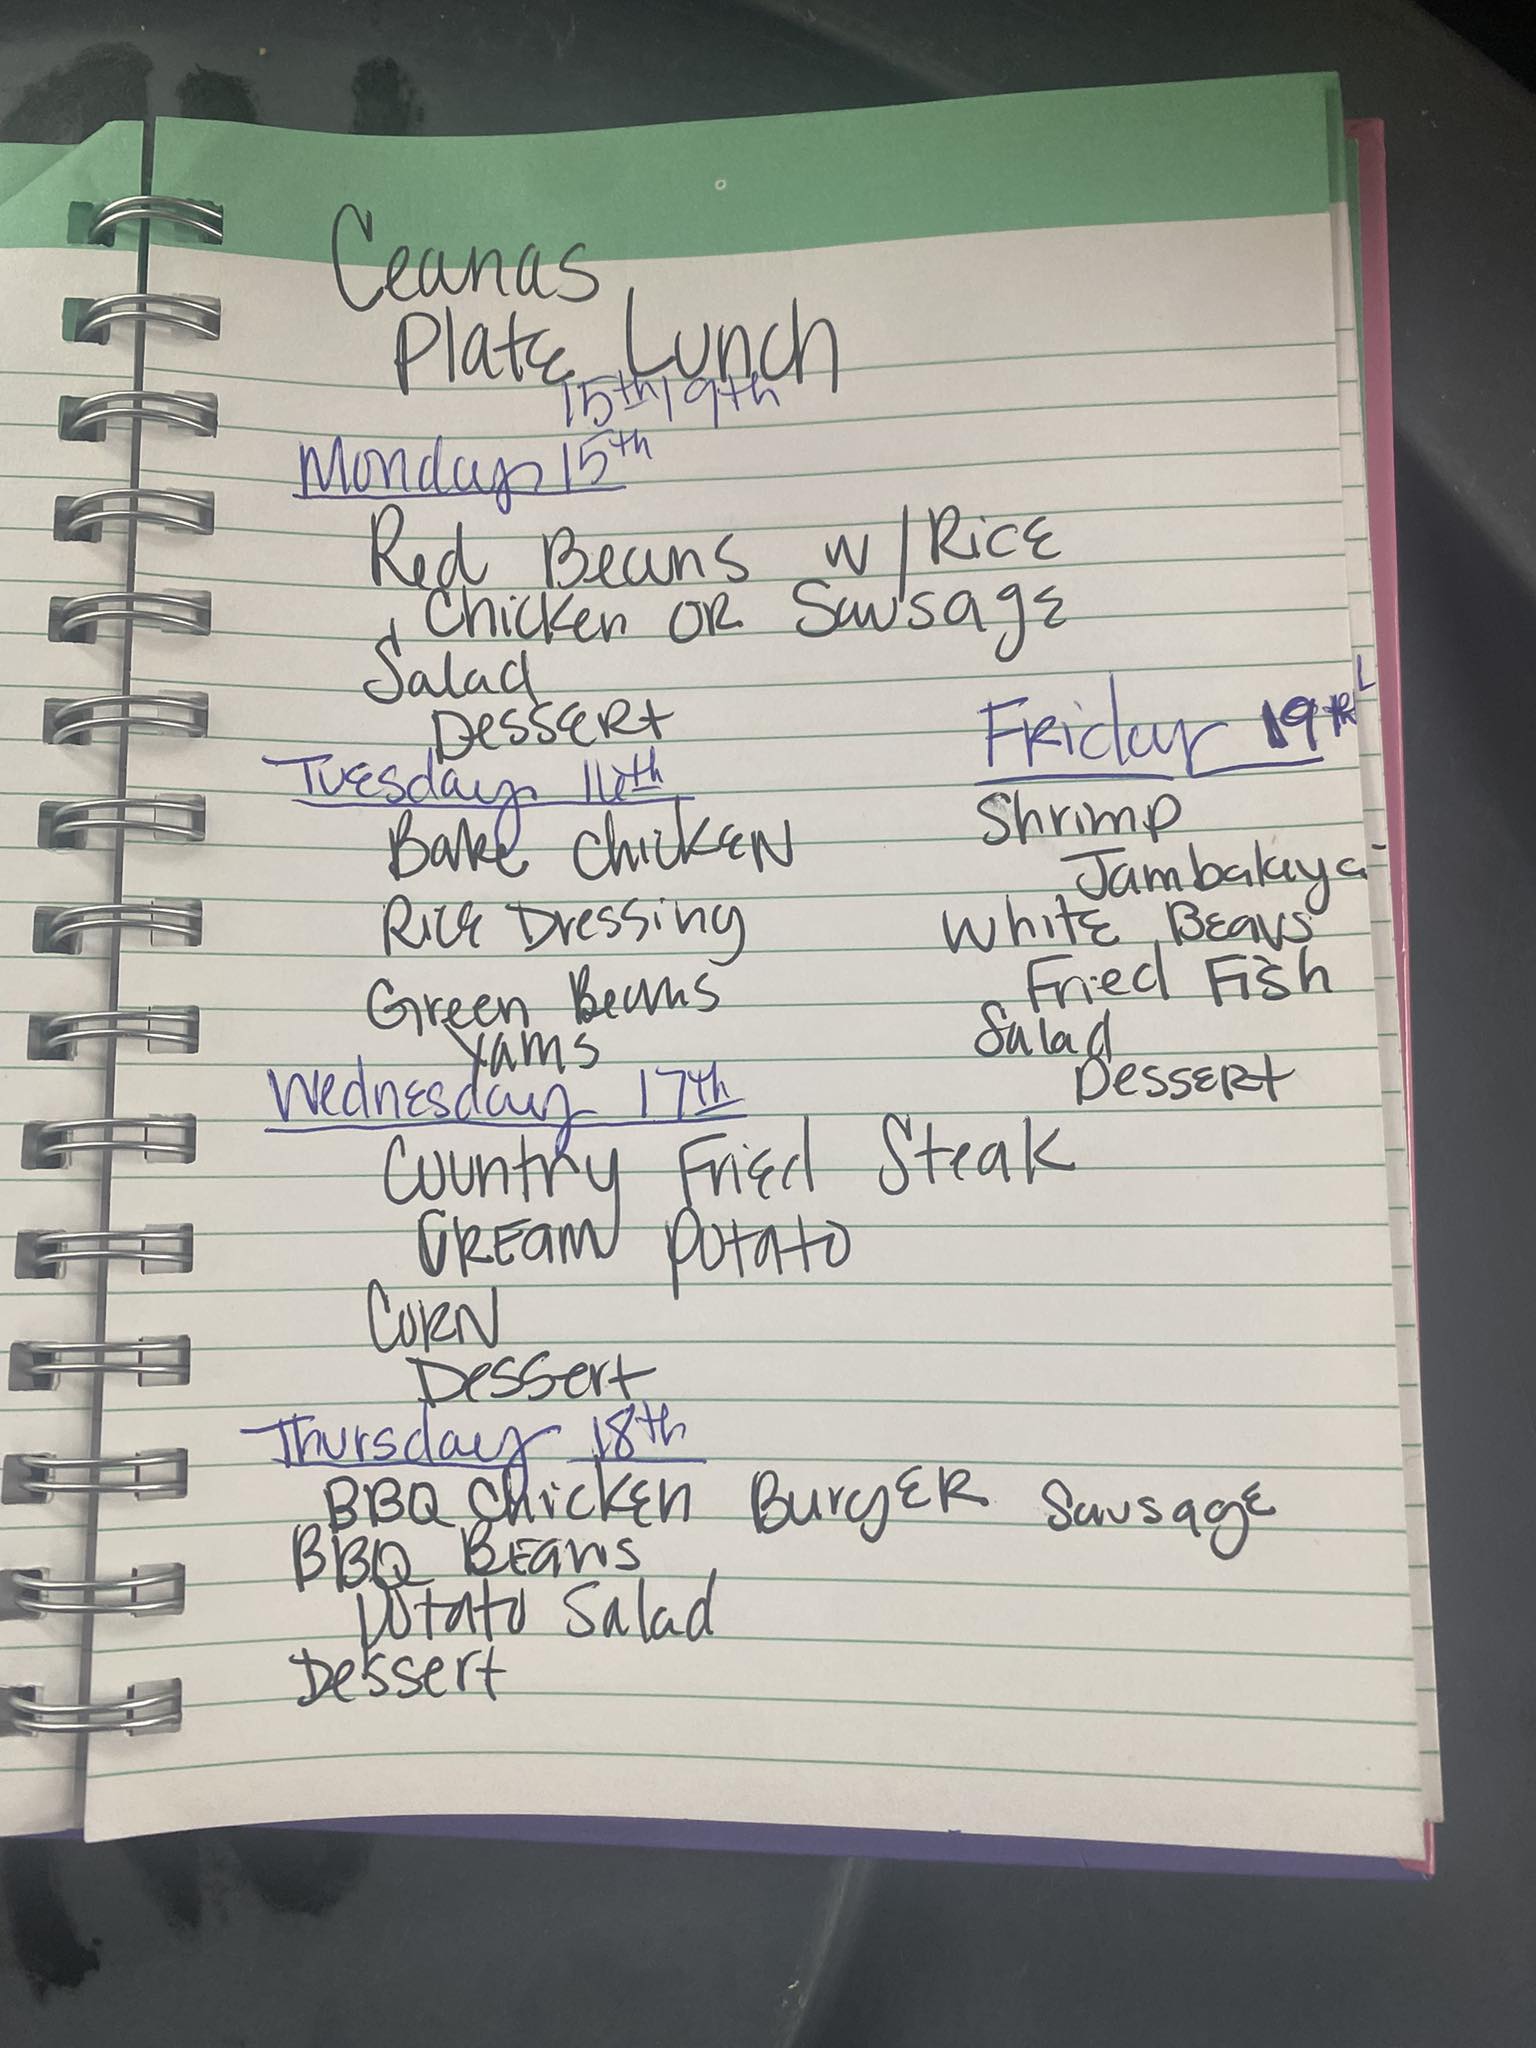 Ceanas
Plate Lunch
15th 19th
Monday 15th
Red Beans w/Rice
Chicken OR Sausage
Salad
Dessert
Tuesday 16th
Bake Chicken
Rice Dressing
Green Beans
Yams
Wednesday 17th
Country Fried Steak
Cream Potato
Corn
Dessert
Thursday 18th
BBQ Chicken Burger Sausage
BBQ Beans
Potato Salad
Dessert
Friday 19th
Shrimp
Jambalaya
White Beans
Fried Fish
Salad
Dessert